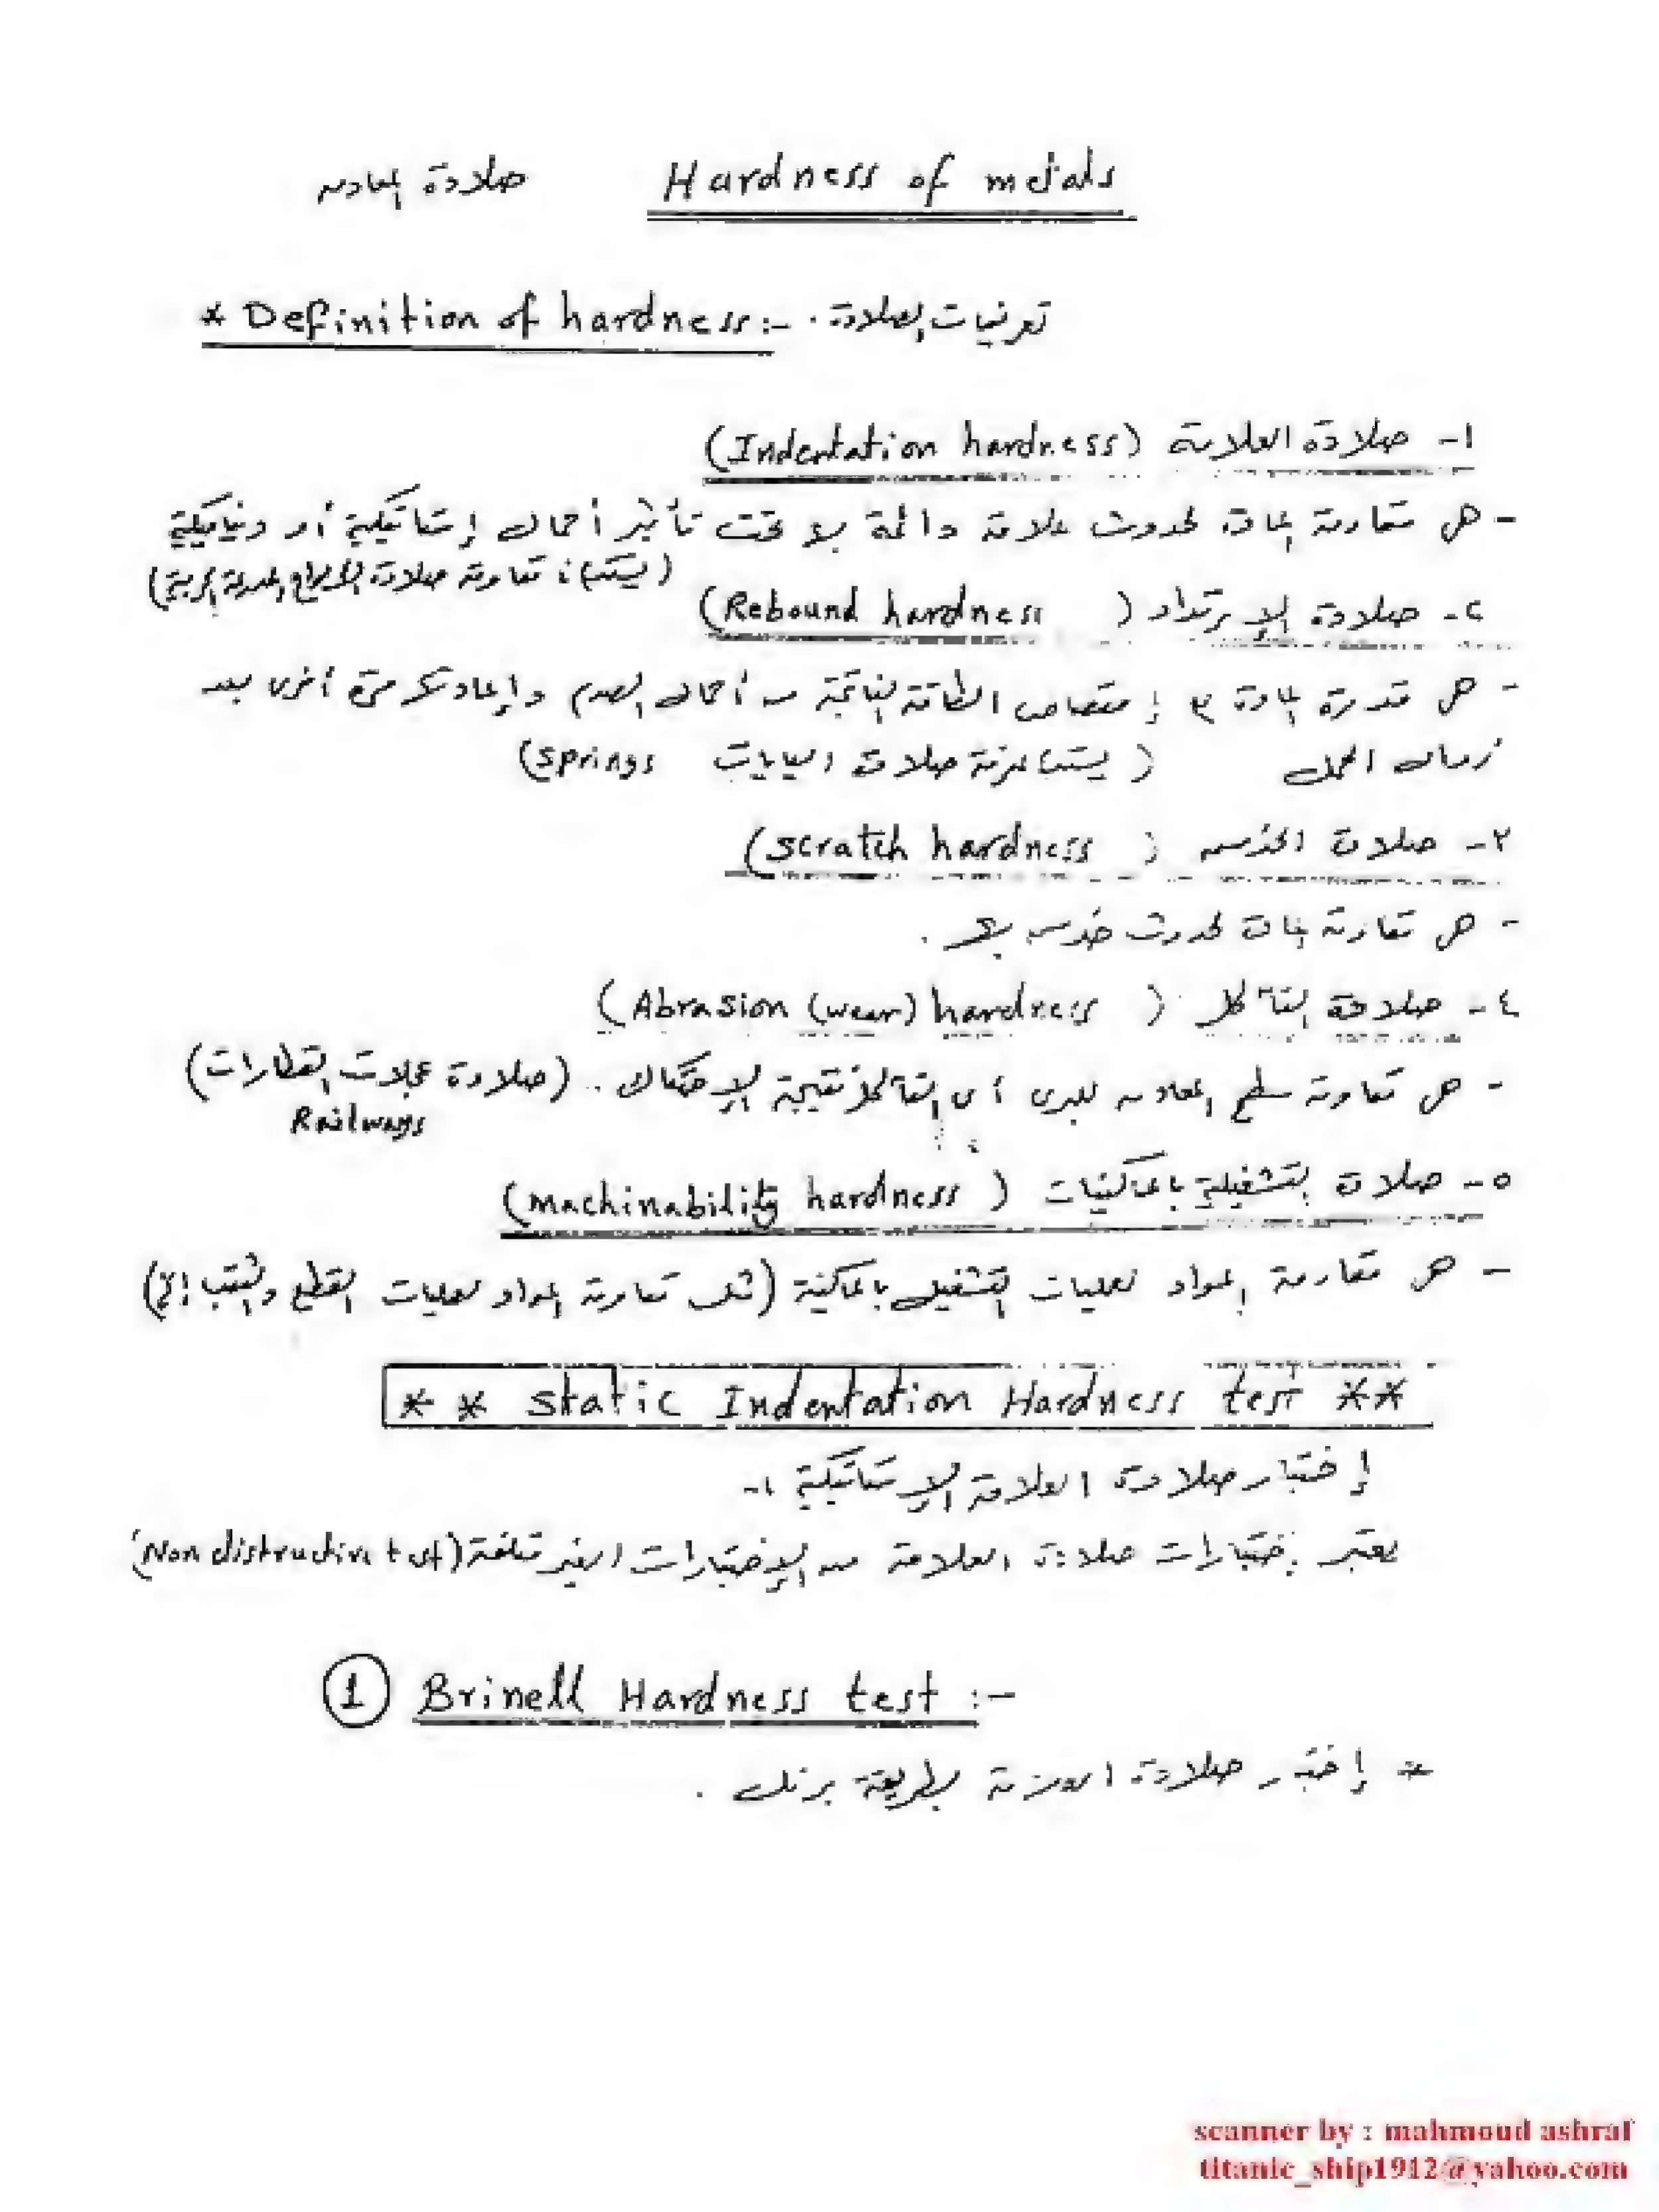 Hardness of metals صلادة المعادن
* Definition of hardness:- تعريفات الصلادة .
١- صلادة العلامة (Indentation hardness)
- هى مقاومة المادة لحدوث علامة دائمة بها تحت تأثير أحمال إستاتيكية أو ديناميكية
مقاومة صلادة
٢- صلادة الإرتداد (Rebound hardness)
- هى قدرة المادة على إمتصاص الطاقة الناتجة من أحمال الصدم وإعادتها مرة أخرى بعد
زوال الحمل ( صلادة اليايات springs)
٣- صلادة الخدش (Scratch hardness)
- هى مقاومة المادة لحدوث خدش بها .
٤- صلادة التآكل (Abrasion (wear) hardness)
- هى مقاومة سطح المعادن للبرى أى التآكل نتيجة الإحتكاك .. (صلادة عجلات القطارات)
Railways
٥- صلادة التشغيلية بالماكينات (machinability hardness)
- هى مقاومة المواد لعمليات التشغيل بالماكينة (مثل مقاومة المواد لعمليات القطع والثقب إلخ)
** Static Indentation Hardness test **
إختبار صلادة العلامة الإستاتيكية :-
يعتبر إختبارات صلادة العلامة من الإختبارات الغير متلفة (Non distructive test)
1 Brinell Hardness test :-
* إختبار صلادة العلامة بطريقة برنل .
scanner by : mahmoud ashraf
titanic_ship1912@yahoo.com